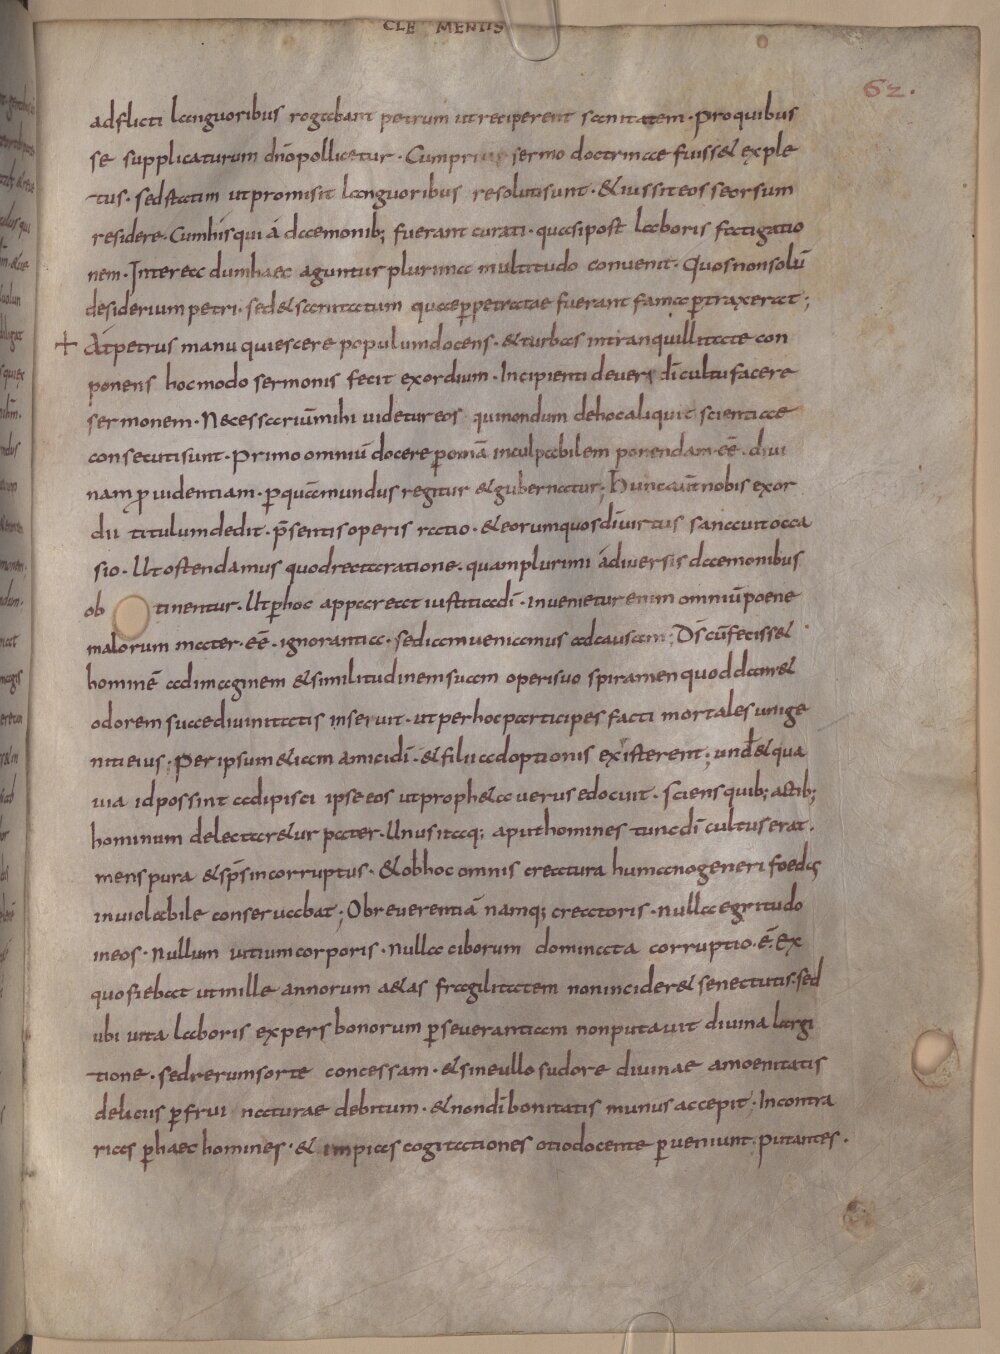 CLEMENTIS
62.
adflicti languoribus rogabant petrum ut reciperent sanitatem · Pro quibus
se supplicaturum dn̄o pollicetur · Cum primus sermo doctrinae fuiss& exple
tus · sed statim ut promisit languoribus resoluti sunt · & iussit eos seorsum
residere · Cum his qui á daemonib; fuerant curati · quasi post laboris fatigatio
nem · Interea dum haec aguntur plurima multitudo convenit · Quos non solū
desiderium petri · sed & sanitatum quae ꝑpetratae fuerant fama ꝑtraxerat;
+ At petrus manu quiescere populum docens · & turbas in tranquillitate con
ponens hoc modo sermonis fecit exordium · Incipienti de vera dī cultu facere
sermonem · Necessariū mihi videtur eos qui nondum de hoc aliquit scientiae
consecuti sunt · Primo omniū docere ꝑ omīa inculpabilem ponendam · eē · divi
nam ꝓvidentiam · ꝑ quam mundus regitur & gubernatur; Hunc aut̄ nobis exor
dii titulum dedit · p̄sentis operis ratio · & eorum quos dī virtus sanavit occa
sio · Ut ostendamus quod recta ratione · quam plurimi á diversis daemonibus
ob tinentur · Ut ꝑ hoc appareat iustitia dī · invenietur enim omniū poene
malorum mater · eē · ignorantia · sed iam veniamus ad causam; Dī cū feciss&
hominē ad imaginem & similitudinem suam operi suo spiramen quoddam &
odorem suae divinitatis inseruit · ut per hoc participes facti mortales unige
niti eius; Per ipsum & iam amici dī · & filii adoptionis existerent; unde & qua
via id possint adipisci ipse eos ut proph&a verus edocuit · sciens quib; actib;
hominum delectar&ur pater · Unus itaq; aput homines tunc dī cultus erat ·
mens pura & sp̄s incorruptus · & ob hoc omnis creatura humano generi foedus
inviolabile conservabat; Ob reverentiā namq; creatoris · nulla egritudo
in eos · nullum vitium corporis · nulla ciborum dominata corruptio · ē · Ex
quo fiebat ut mille annorum a&as fragilitatem non incider& senectutis · sed
ubi vita laboris expers bonorum ꝑseverantiam non putavit divina largi
tione · sed rerum sorte concessam · & sine ullo sudore divinae amoenitatis
deliciis ꝑfrui naturae debitum · & non dī bonitatis munus accepit · In contra
rias ꝑ haec homines · & impias cogitationes otio docente ꝑveniunt · putantes ·